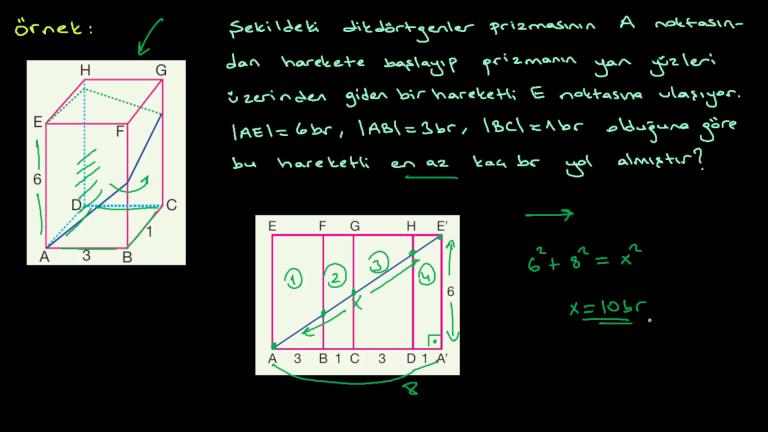 örnek:
Şekildeki dikdörtgenler prizmasının A noktasın-
dan harekete başlayıp prizmanın yan yüzleri
üzerinden giden bir hareketli E noktasına ulaşıyor.
|AE|= 6br, |AB|= 3br, |BC|= 1br olduğuna göre
bu hareketli en az kaç br yol almıştır?
H G
E F
6
D C
1
A 3 B
E F G H E'
1 2 3 4
x
6
A 3 B 1 C 3 D 1 A'
8
6² + 8² = x²
x = 10br.